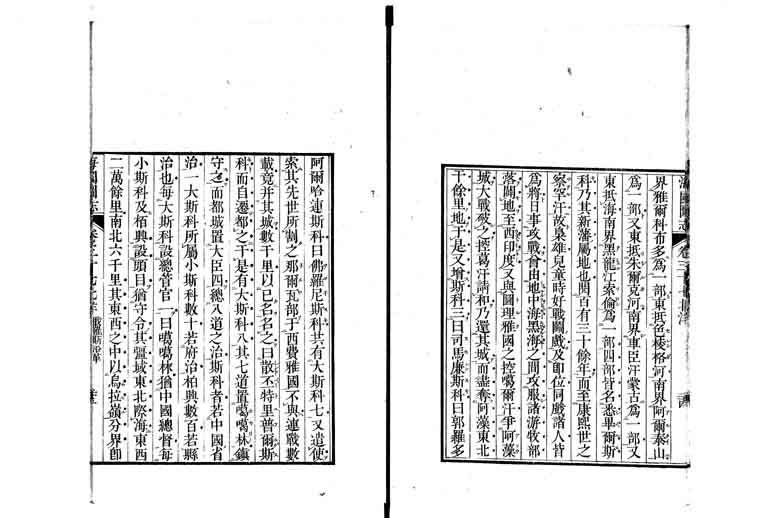 界雅爾科布多爲一部東抵色棱格河南界阿爾泰山
爲一部又東抵朱爾克河南界車臣汗蒙古爲一部又
東抵海南界黑龍江索倫爲一部四部皆名悉畢爾斯
科乃其新藩屬地也閱百有三十餘年而至康熙世之
察罕汗故梟雄兒童時好戰鬭戲及卽位同戲諸人皆
爲將日事攻戰曾由地中海黑海之間攻服諸游牧部
落闢地至西印度又與圖理雅國之控噶爾汗爭阿藻
城大戰破之控葛汗請和乃還其城而盡奪阿藻東北
千餘里地于是又增斯科三曰司馬廉斯科曰郭羅多
阿爾哈連斯科曰佛羅尼斯科共有大斯科七又遣使
索其先世所割之那爾瓦部于西費雅國不與連戰數
載竟幷其城數千里以己名名之曰散丕特里普爾斯
科而自遷都之于是有大斯科八其七道置噶噶林鎭
守之而都城置大臣四總八道之治斯科者若中國省
治一大斯科所屬小斯科數十若府治柏興數百若縣
治也每大斯科設總管官一曰噶噶林猶中國總督每
小斯科及栢興設頭目猶守令其彊域東北際海東西
二萬餘里南北六千里其東西之中以烏拉嶺分界卽
海國圖志